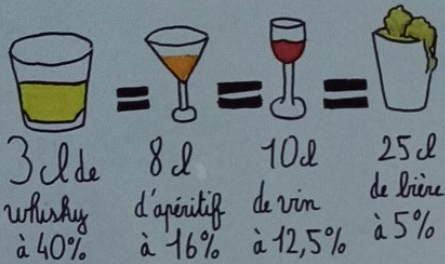 3 cl de
whisky
à 40%
8 cl
d'apéritif
à 16%
10 cl
de vin
à 12,5%
25 cl
de bière
à 5%